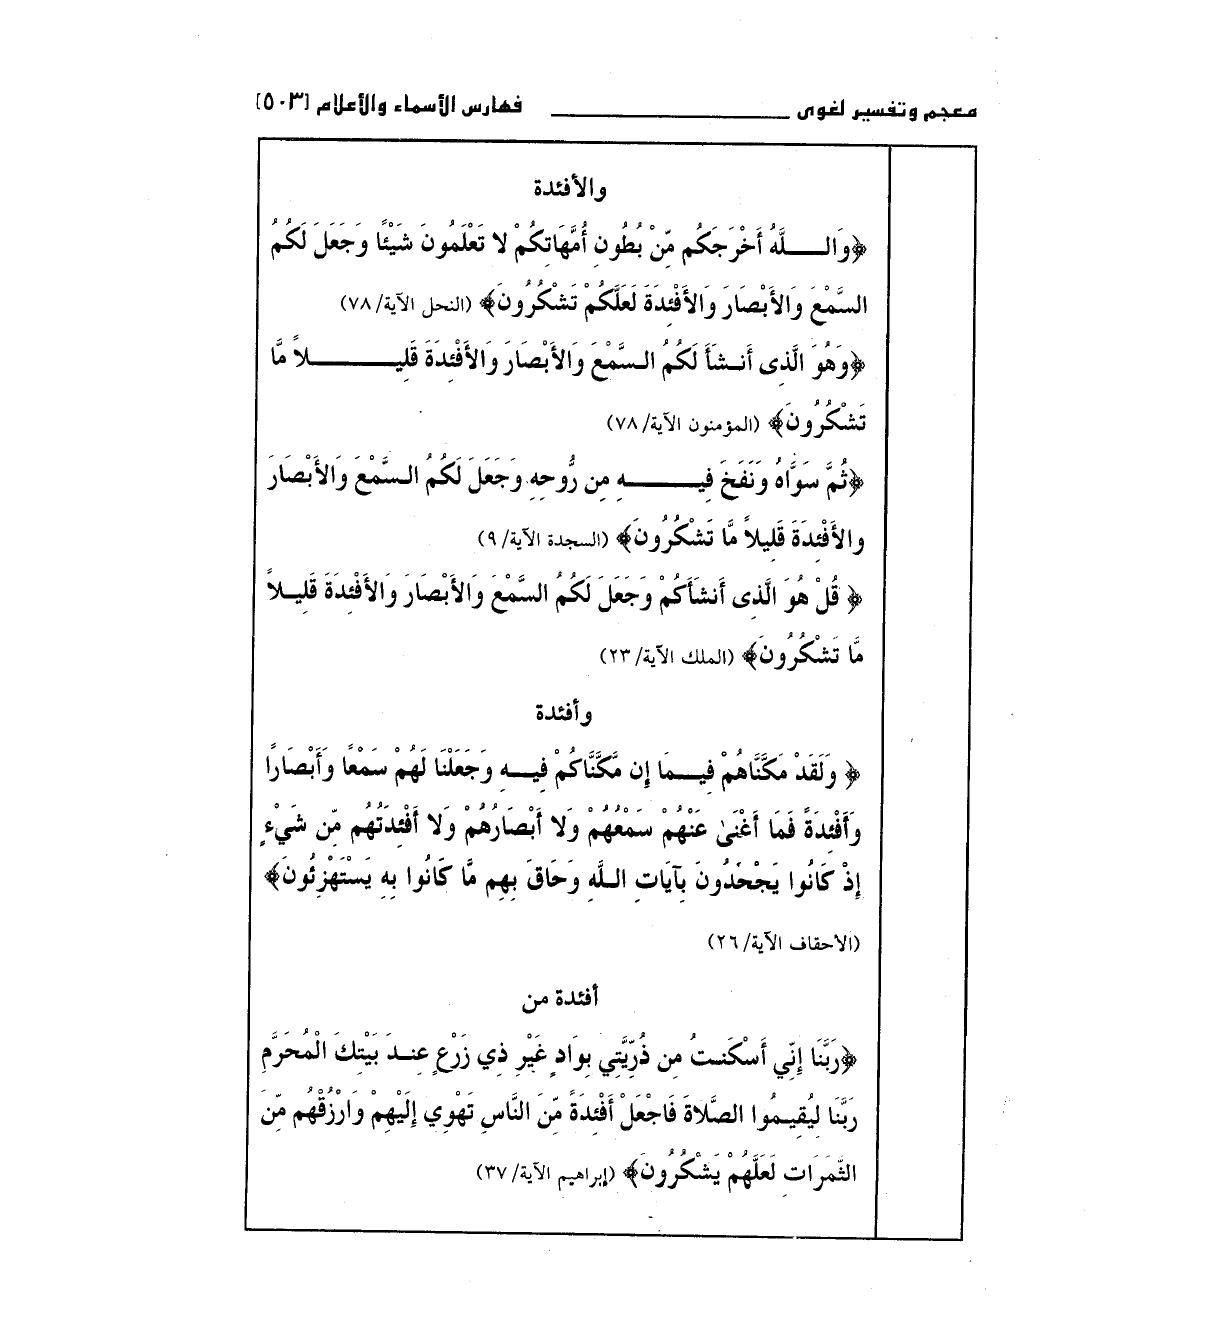 معجم وتفسير لغوى ــــــــــ فهارس الأسماء والأعلام [٥٠٣]
والأفئدة
﴿وَاللَّهُ أَخْرَجَكُم مِّنْ بُطُونِ أُمَّهَاتِكُمْ لا تَعْلَمُونَ شَيْئًا وَجَعَلَ لَكُمُ
السَّمْعَ وَالأَبْصَارَ وَالأَفْئِدَةَ لَعَلَّكُمْ تَشْكُرُونَ﴾ (النحل الآية/ ٧٨)
﴿وَهُوَ الَّذِى أَنشَأَ لَكُمُ السَّمْعَ وَالأَبْصَارَ وَالأَفْئِدَةَ قَلِيلاً مَّا
تَشْكُرُونَ﴾ (المؤمنون الآية/ ٧٨)
﴿ثُمَّ سَوَّاهُ وَنَفَخَ فِيهِ مِن رُّوحِهِ وَجَعَلَ لَكُمُ السَّمْعَ وَالأَبْصَارَ
والأَفْئِدَةَ قَلِيلاً مَّا تَشْكُرُونَ﴾ (السجدة الآية/ ٩)
﴿ قُلْ هُوَ الَّذِى أَنشَأَكُمْ وَجَعَلَ لَكُمُ السَّمْعَ وَالأَبْصَارَ وَالأَفْئِدَةَ قَلِيلاً
مَّا تَشْكُرُونَ﴾ (الملك الآية/ ٢٣)
وأفئدة
﴿ وَلَقَدْ مَكَّنَّاهُمْ فِيمَا إِن مَّكَّنَّاكُمْ فِيهِ وَجَعَلْنَا لَهُمْ سَمْعًا وَأَبْصَارًا
وَأَفْئِدَةً فَمَا أَغْنَىٰ عَنْهُمْ سَمْعُهُمْ وَلا أَبْصَارُهُمْ وَلا أَفْئِدَتُهُم مِّن شَيْءٍ
إِذْ كَانُوا يَجْحَدُونَ بِآيَاتِ اللَّهِ وَحَاقَ بِهِم مَّا كَانُوا بِهِ يَسْتَهْزِئُونَ﴾
(الأحقاف الآية/ ٢٦)
أفئدة من
﴿رَبَّنَا إِنِّي أَسْكَنتُ مِن ذُرِّيَّتِي بِوَادٍ غَيْرِ ذِي زَرْعٍ عِندَ بَيْتِكَ الْمُحَرَّمِ
رَبَّنَا لِيُقِيمُوا الصَّلاةَ فَاجْعَلْ أَفْئِدَةً مِّنَ النَّاسِ تَهْوِي إِلَيْهِمْ وَارْزُقْهُم مِّنَ
الثَّمَرَاتِ لَعَلَّهُمْ يَشْكُرُونَ﴾ (إبراهيم الآية/ ٣٧)